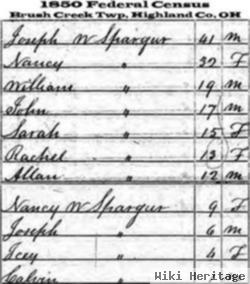 1850 Federal Census
Brush Creek Twp, Highland Co, OH
Joseph W Spargur 41 m
Nancy " 32 F
William " 19 m
John " 17 m
Sarah " 15 F
Rachel " 13 F
Allan " 12 m
Nancy W Spargur 9 F
Joseph " 6 m
Icey " 4 F
Calvin "
Wiki Heritage